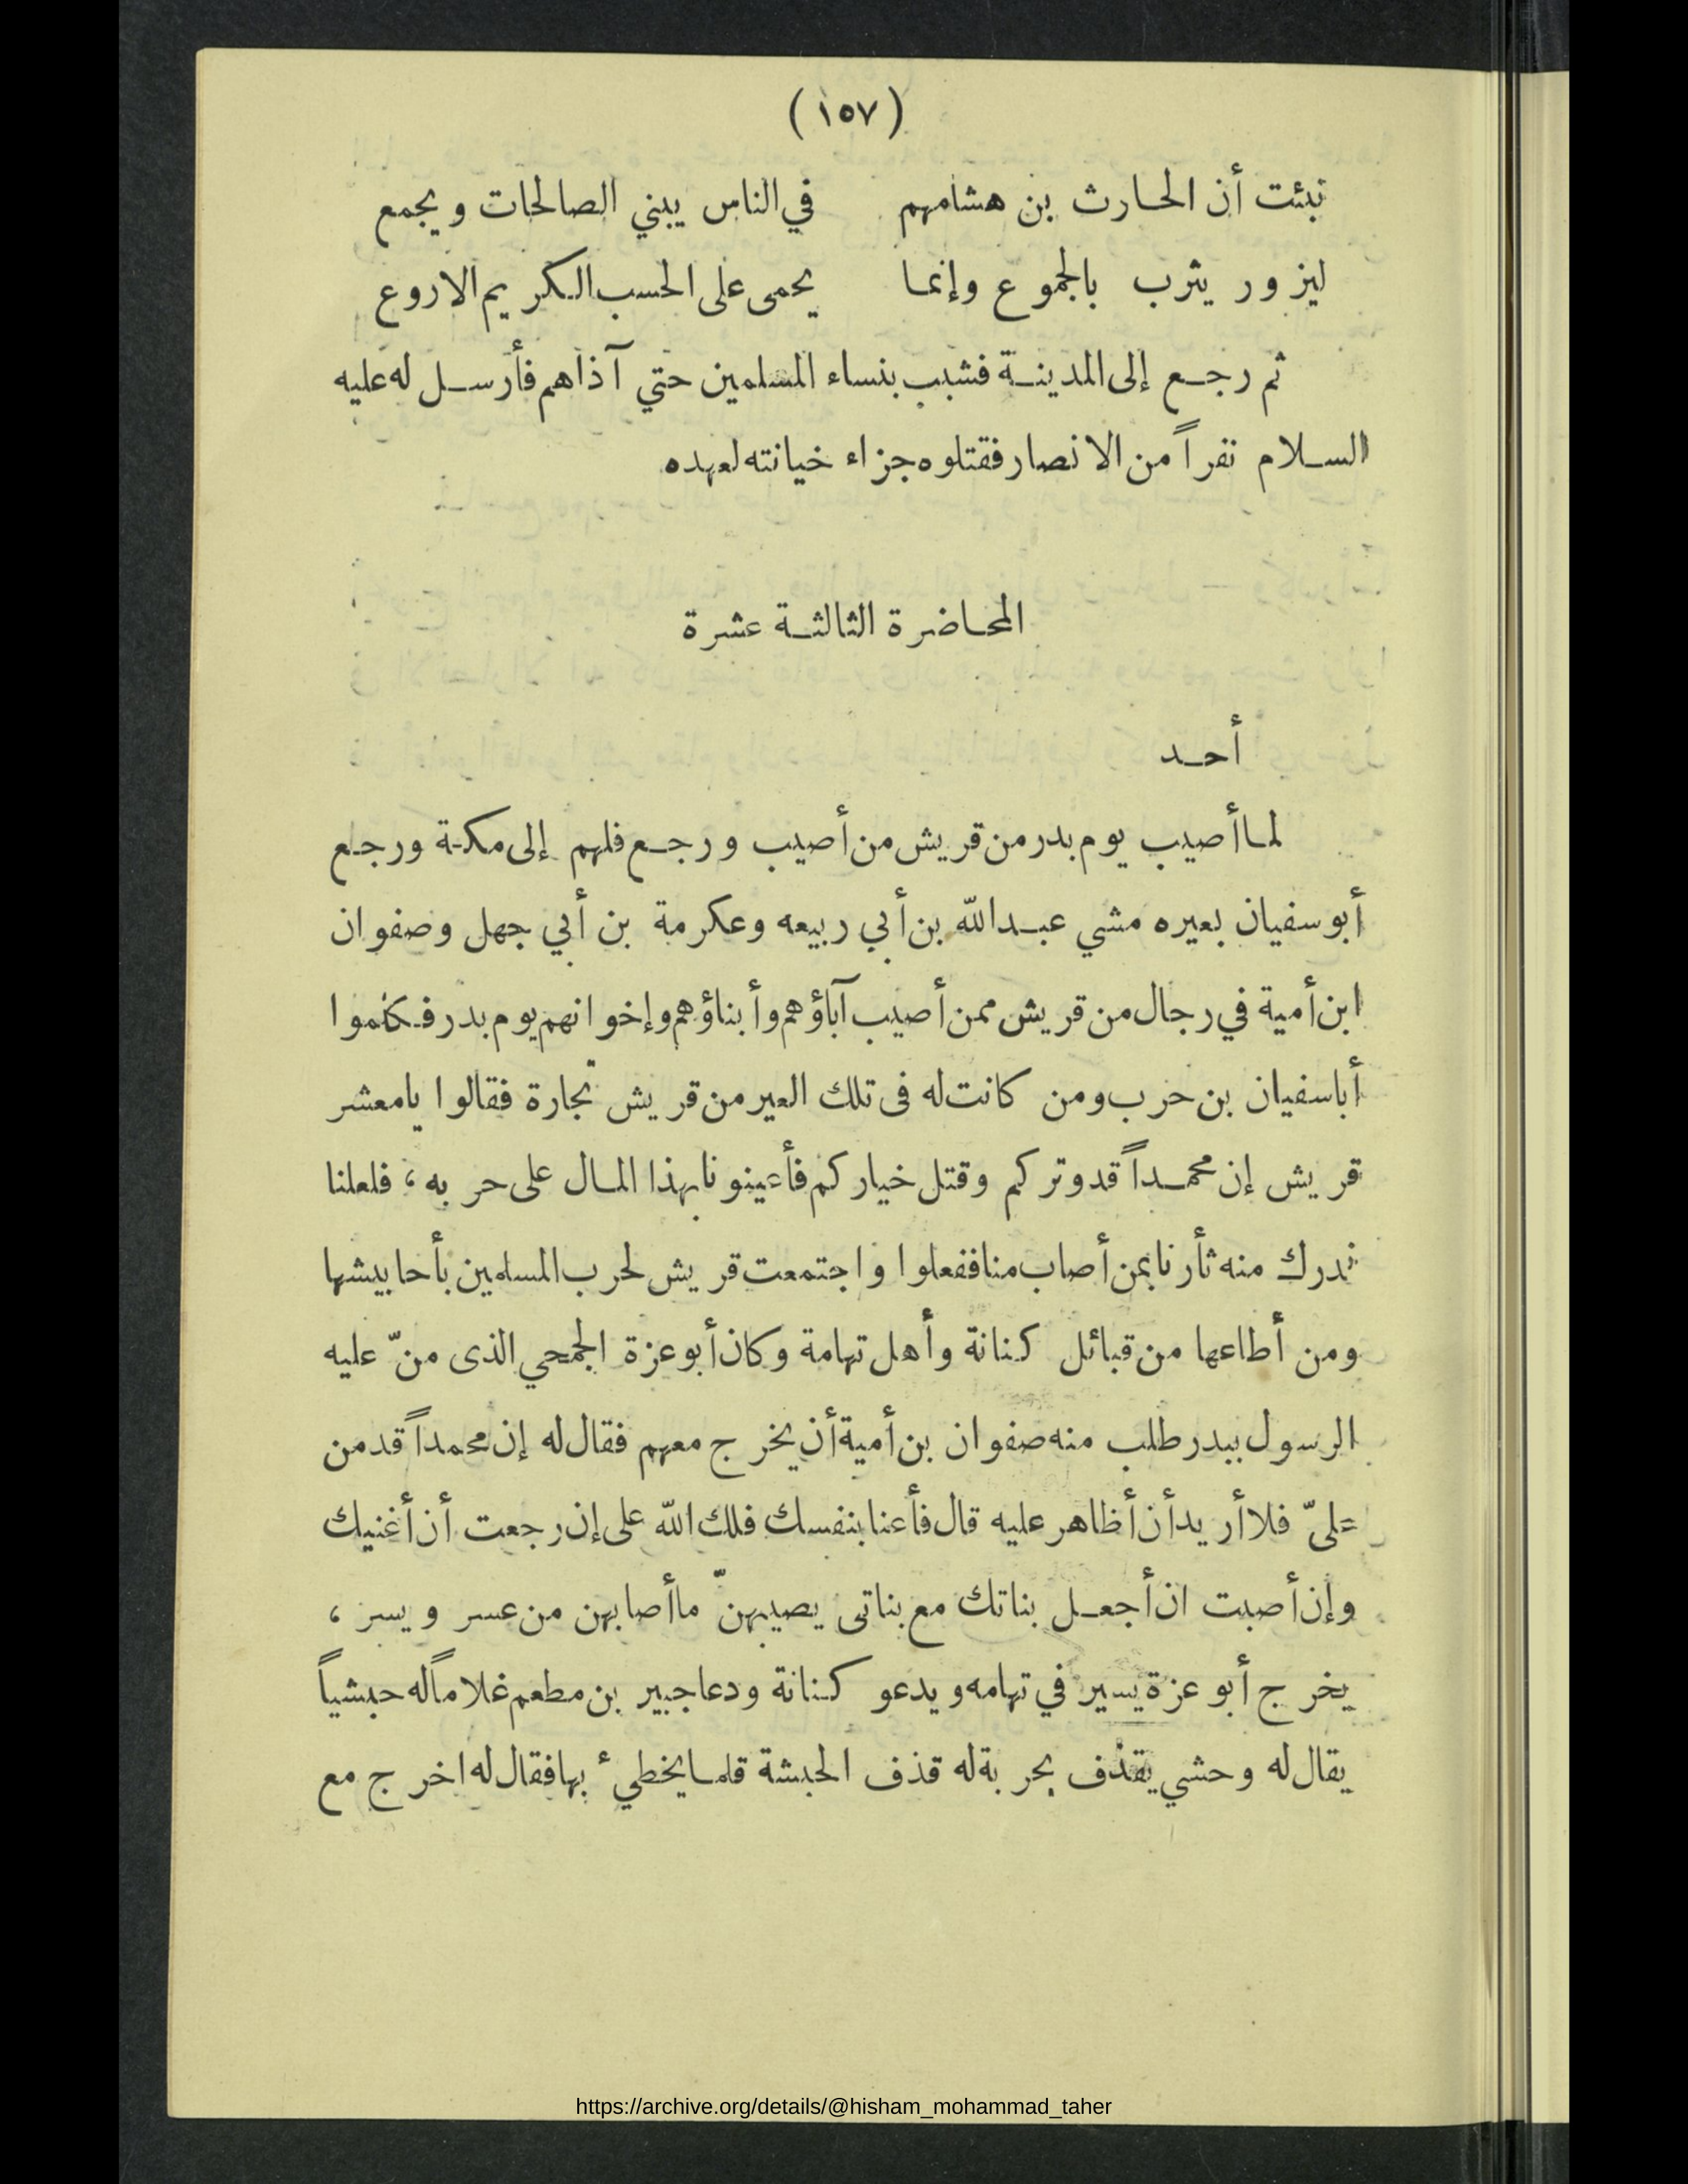 (١٥٧)
نبئت أن الحارث بن هشامهم في الناس يبني الصالحات ويجمع
ليزور يثرب بالجموع وإنما يحمى على الحسب الكريم الاروع
ثم رجع إلى المدينة فشبب بنساء المسلمين حتي آذاهم فأرسل له عليه
السلام نفراً من الانصار فقتلوه جزاء خيانته لعهده
المحاضرة الثالثة عشرة
أحد
لما أصيب يوم بدر من قريش من أصيب ورجع فلهم إلى مكة ورجع
أبو سفيان بعيره مشي عبد الله بن أبي ربيعه وعكرمة بن أبي جهل وصفوان
ابن أمية في رجال من قريش ممن أصيب آباؤهم وأبناؤهم وإخوانهم يوم بدر فكلموا
أبا سفيان بن حرب ومن كانت له فى تلك العير من قريش تجارة فقالوا يا معشر
قريش إن محمداً قد وتركم وقتل خياركم فأعينونا بهذا المال على حربه، فلعلنا
ندرك منه ثأرنا بمن أصاب منا ففعلوا واجتمعت قريش لحرب المسلمين بأحابيشها
ومن أطاعها من قبائل كنانة وأهل تهامة وكان أبو عزة الجمحي الذى منّ عليه
الرسول ببدر طلب منه صفوان بن أمية أن يخرج معهم فقال له إن محمداً قد من
علىّ فلا أريد أن أظاهر عليه قال فأعنا بنفسك فلك الله على إن رجعت أن أغنيك
وإن أصبت ان أجعل بناتك مع بناتى يصيبهنّ ما أصابهن من عسر ويسر،
يخرج أبو عزة يسير في تهامه ويدعو كنانة ودعا جبير بن مطعم غلاماً له حبشياً
يقال له وحشي يقذف بحربة له قذف الحبشة قلما يخطيء بها فقال له اخرج مع
https://archive.org/details/@hisham_mohammad_taher